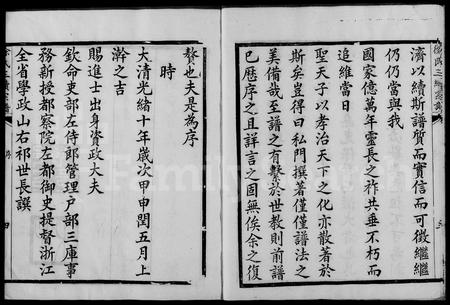 濟以續斯譜質而實信而可徵繼繼
仍仍當與我
國家億萬年靈長之祚共垂不朽而
追維當日
聖天子以孝治天下之化亦散著於
斯矣豈得曰私門撰著僅僅譜法之
美備哉至譜之有繫於世教則前譜
已歷序之且詳言之固無俟余之復
贅也夫是為序
時
大清光緒十年歲次甲申閏五月上
澣之吉
賜進士出身資政大夫
欽命吏部左侍郎管理户部三庫事
務新授都察院左都御史提督浙江
全省學政山右祁世長譔
序
四